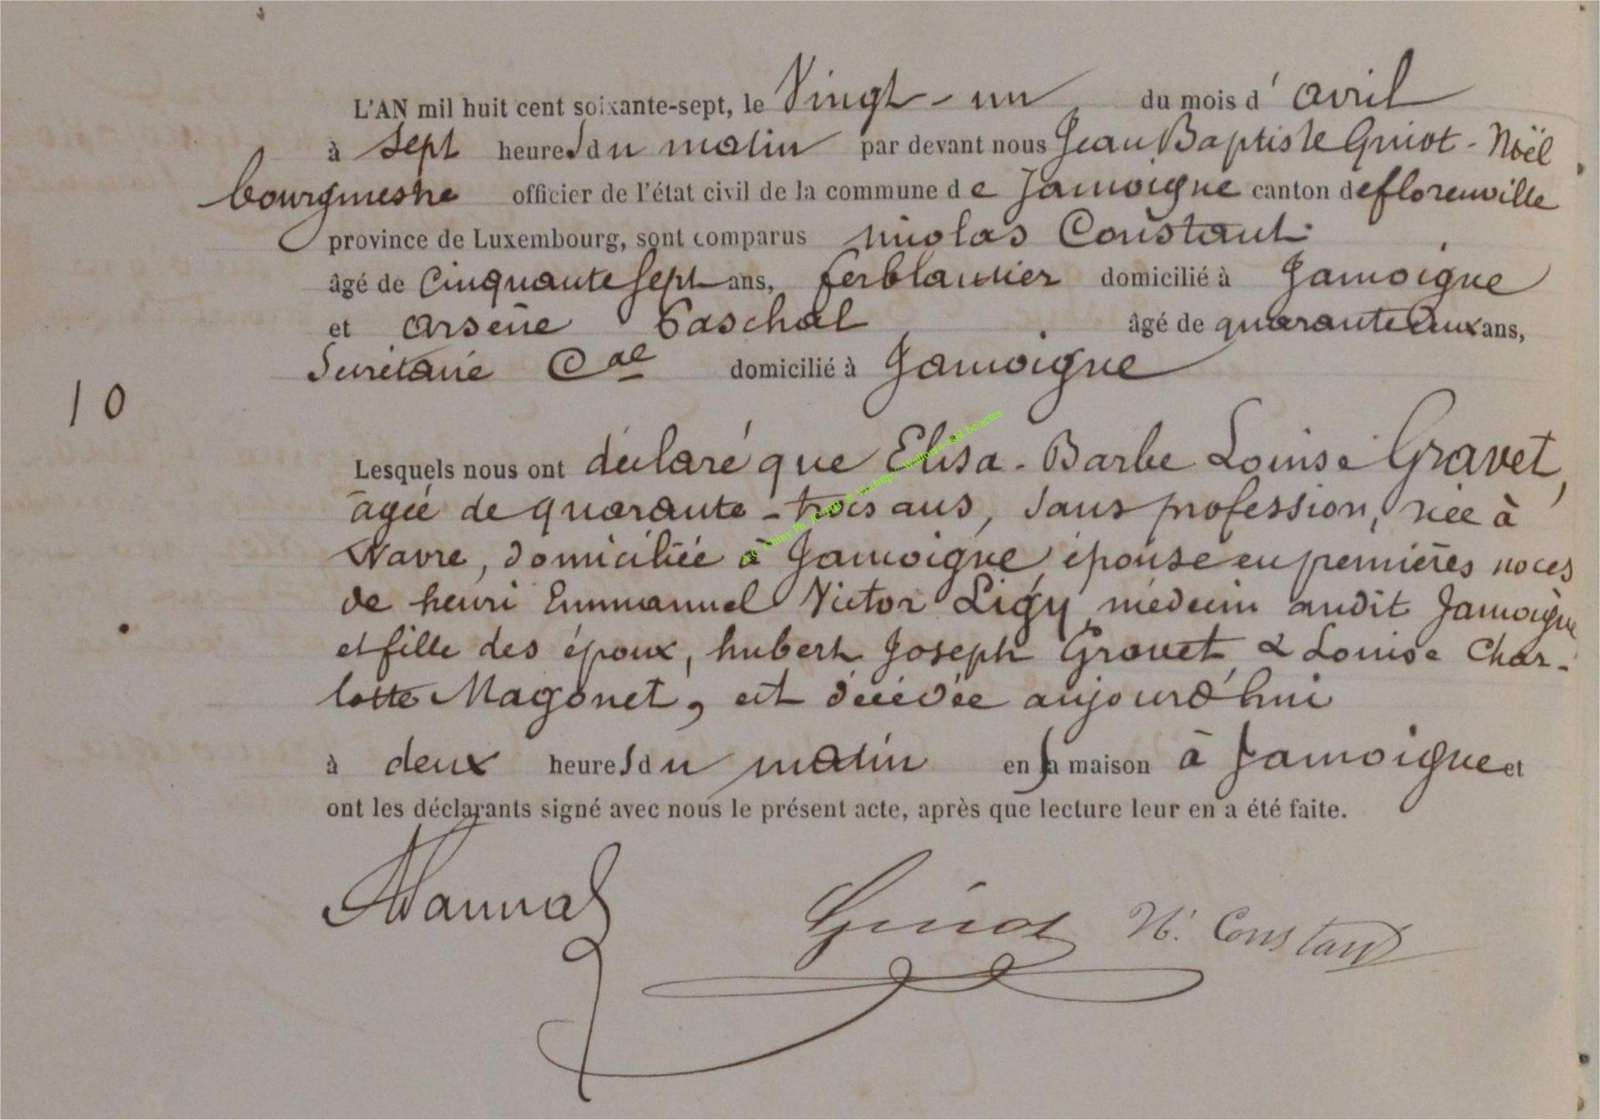 L'AN mil huit cent soixante-sept, le Vingt-un du mois d'avril
à sept heures du matin par devant nous Jean Baptiste Guiot-Noël
bourgmestre officier de l'état civil de la commune de Jamoigne canton de florenville
province de Luxembourg, sont comparus nicolas Constant
âgé de cinquante sept ans, ferblantier domicilié à Jamoigne
et arsène Paschal âgé de quarante deux ans,
Secrétaire Cal domicilié à Jamoigne
10
Lesquels nous ont déclaré que Elisa-Barbe Louise Gravet,
agée de quarante-trois ans, sans profession, née à
Wavre, domiciliée à Jamoigne épouse en premières noces
de henri Emmanuel Victor Ligy médecin audit Jamoigne
et fille des époux, hubert Joseph Gravet & Louise Char-
lotte Magonet, est décédée aujourd'hui
à deux heures du matin en sa maison à Jamoigne et
ont les déclarants signé avec nous le présent acte, après que lecture leur en a été faite.
Guiot N. Constant